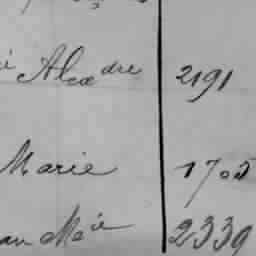 Alexdre 2191
Marie 1705
Mie 2339